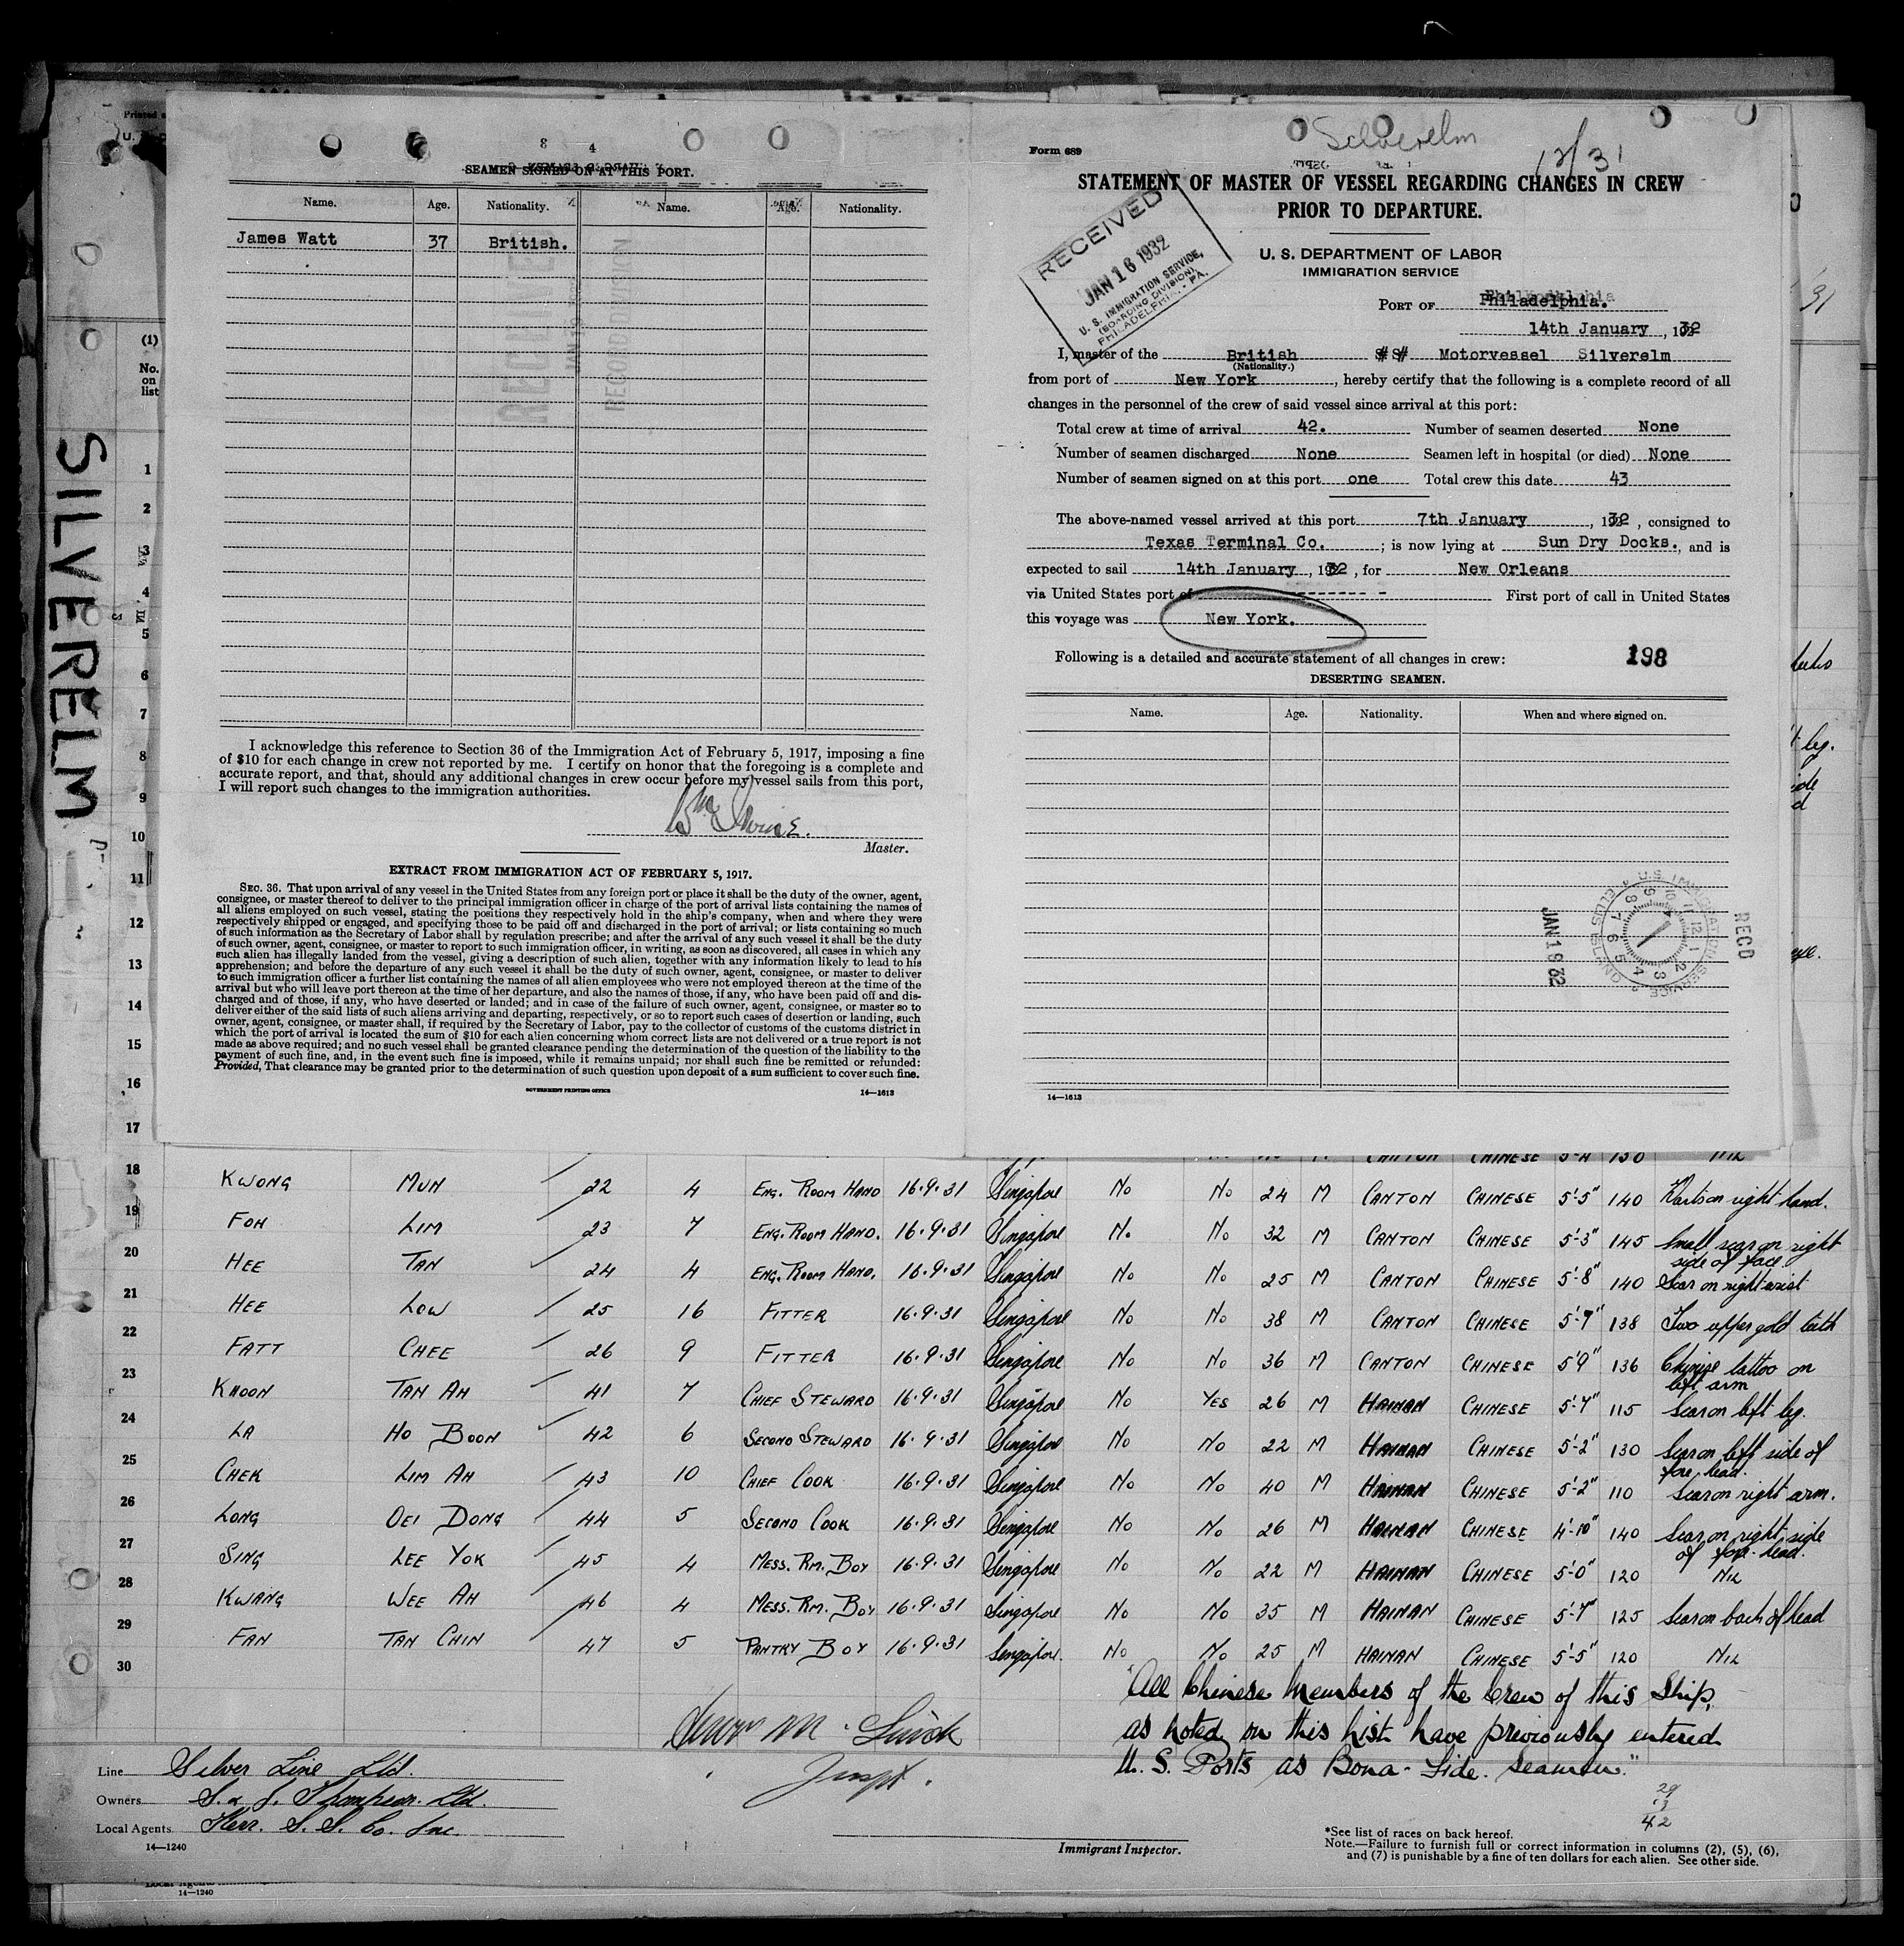 SILVERELM
8 4
SEAMEN SIGNED ON AT THIS PORT.
Name. Age. Nationality. Name. Age. Nationality.
James Watt 37 British.
I acknowledge this reference to Section 36 of the Immigration Act of February 5, 1917, imposing a fine
of $10 for each change in crew not reported by me. I certify on honor that the foregoing is a complete and
accurate report, and that, should any additional changes in crew occur before my vessel sails from this port,
I will report such changes to the immigration authorities.
Master.
EXTRACT FROM IMMIGRATION ACT OF FEBRUARY 5, 1917.
SEC. 36. That upon arrival of any vessel in the United States from any foreign port or place it shall be the duty of the owner, agent,
consignee, or master thereof to deliver to the principal immigration officer in charge of the port of arrival lists containing the names of
all aliens employed on such vessel, stating the positions they respectively hold in the ship's company, when and where they were
respectively shipped or engaged, and specifying those to be paid off and discharged in the port of arrival; or lists containing so much
of such information as the Secretary of Labor shall by regulation prescribe; and after the arrival of any such vessel it shall be the duty
of such owner, agent, consignee, or master to report to such immigration officer, in writing, as soon as discovered, all cases in which any
such alien has illegally landed from the vessel, giving a description of such alien, together with any information likely to lead to his
apprehension; and before the departure of any such vessel it shall be the duty of such owner, agent, consignee, or master to deliver
to such immigration officer a further list containing the names of all alien employees who were not employed thereon at the time of the
arrival but who will leave port thereon at the time of her departure, and also the names of those, if any, who have been paid off and dis-
charged and of those, if any, who have deserted or landed; and in case of the failure of such owner, agent, consignee, or master so to
deliver either of the said lists of such aliens arriving and departing, respectively, or so to report such cases of desertion or landing, such
owner, agent, consignee, or master shall, if required by the Secretary of Labor, pay to the collector of customs of the customs district in
which the port of arrival is located the sum of $10 for each alien concerning whom correct lists are not delivered or a true report is not
made as above required; and no such vessel shall be granted clearance pending the determination of the question of the liability to the
payment of such fine, and, in the event such fine is imposed, while it remains unpaid; nor shall such fine be remitted or refunded:
Provided, That clearance may be granted prior to the determination of such question upon deposit of a sum sufficient to cover such fine.
GOVERNMENT PRINTING OFFICE 14—1613
Silverelm
Form 689
STATEMENT OF MASTER OF VESSEL REGARDING CHANGES IN CREW
PRIOR TO DEPARTURE.
RECEIVED
JAN 16 1932
U. S. IMMIGRATION SERVICE,
(BOARDING DIVISION)
PHILADELPHIA, - PA.
U. S. DEPARTMENT OF LABOR
IMMIGRATION SERVICE
PORT OF Philadelphia.
14th January, 1932
I, master of the British Motorvessel Silverelm
(Nationality.)
from port of New York, hereby certify that the following is a complete record of all
changes in the personnel of the crew of said vessel since arrival at this port:
Total crew at time of arrival 42. Number of seamen deserted None
Number of seamen discharged None Seamen left in hospital (or died) None
Number of seamen signed on at this port one Total crew this date 43
The above-named vessel arrived at this port 7th January, 1932, consigned to
Texas Terminal Co.; is now lying at Sun Dry Docks., and is
expected to sail 14th January, 1932, for New Orleans
via United States port of - - - - - - - First port of call in United States
this voyage was New York.
Following is a detailed and accurate statement of all changes in crew: 198
DESERTING SEAMEN.
Name. Age. Nationality. When and where signed on.
RECD
JAN 19 32
14—1613
(1)
No.
on
list
1
2
3
4
5
6
7
8
9
10
11
12
13
14
15
16
17
18 KWONG MUN 22 4 ENG. ROOM HAND 16.9.31 Singapore No No 24 M CANTON CHINESE 5'-5" 140 Warts on right hand.
19 FOH LIM 23 7 ENG. ROOM HAND. 16.9.31 Singapore No 32 M CANTON CHINESE 5'-3" 145 Small scar on right side of face
20 HEE TAN 24 4 ENG. ROOM HAND. 16.9.31 Singapore No No 25 M CANTON CHINESE 5'-8" 140 Scar on right wrist
21 HEE LOW 25 16 FITTER 16.9.31 Singapore No No 38 M CANTON CHINESE 5'-7" 138 Two upper gold teeth
22 FATT CHEE 26 9 FITTER 16.9.31 Singapore No No 36 M CANTON CHINESE 5'9" 136 Chinese tattoo on left arm
23 KHOON TAN AH 41 7 CHIEF STEWARD 16.9.31 Singapore No YES 26 M HAINAN CHINESE 5'-7" 115 Scar on left leg.
24 LA HO BOON 42 6 SECOND STEWARD 16.9.31 Singapore No No 22 M HAINAN CHINESE 5'-2" 130 Scar on left side of fore head.
25 CHEK LIM AH 43 10 CHIEF COOK 16.9.31 Singapore No No 40 M HAINAN CHINESE 5'-2" 110 Scar on right arm.
26 LONG OEI DONG 44 5 SECOND COOK 16.9.31 Singapore No No 26 M HAINAN CHINESE 4'-10" 140 Scar on right side of fore-head.
27 SING LEE YOK 45 4 MESS. RM. BOY 16.9.31 Singapore No No 22 M HAINAN CHINESE 5'-0" 120 NIL
28 KWANG WEE AH 46 4 MESS. RM. BOY 16.9.31 Singapore No No 35 M HAINAN CHINESE 5'-7" 125 Scar on back of head
29 FAN TAN CHIN 47 5 PANTRY BOY 16.9.31 Singapore. No No 25 M HAINAN CHINESE 5'-5" 120 NIL
30
"All Chinese Members of the Crew of this Ship,
as noted on this list have previously entered
U. S. Ports as Bona-Fide Seamen."
Line Silver Line Ltd.
Owners S. & J. Thompson Ltd.
Local Agents Kerr. S. S. Co. Inc.
14—1240
Immigrant Inspector.
29
13
42
*See list of races on back hereof.
Note.—Failure to furnish full or correct information in columns (2), (5), (6),
and (7) is punishable by a fine of ten dollars for each alien. See other side.
14—1240